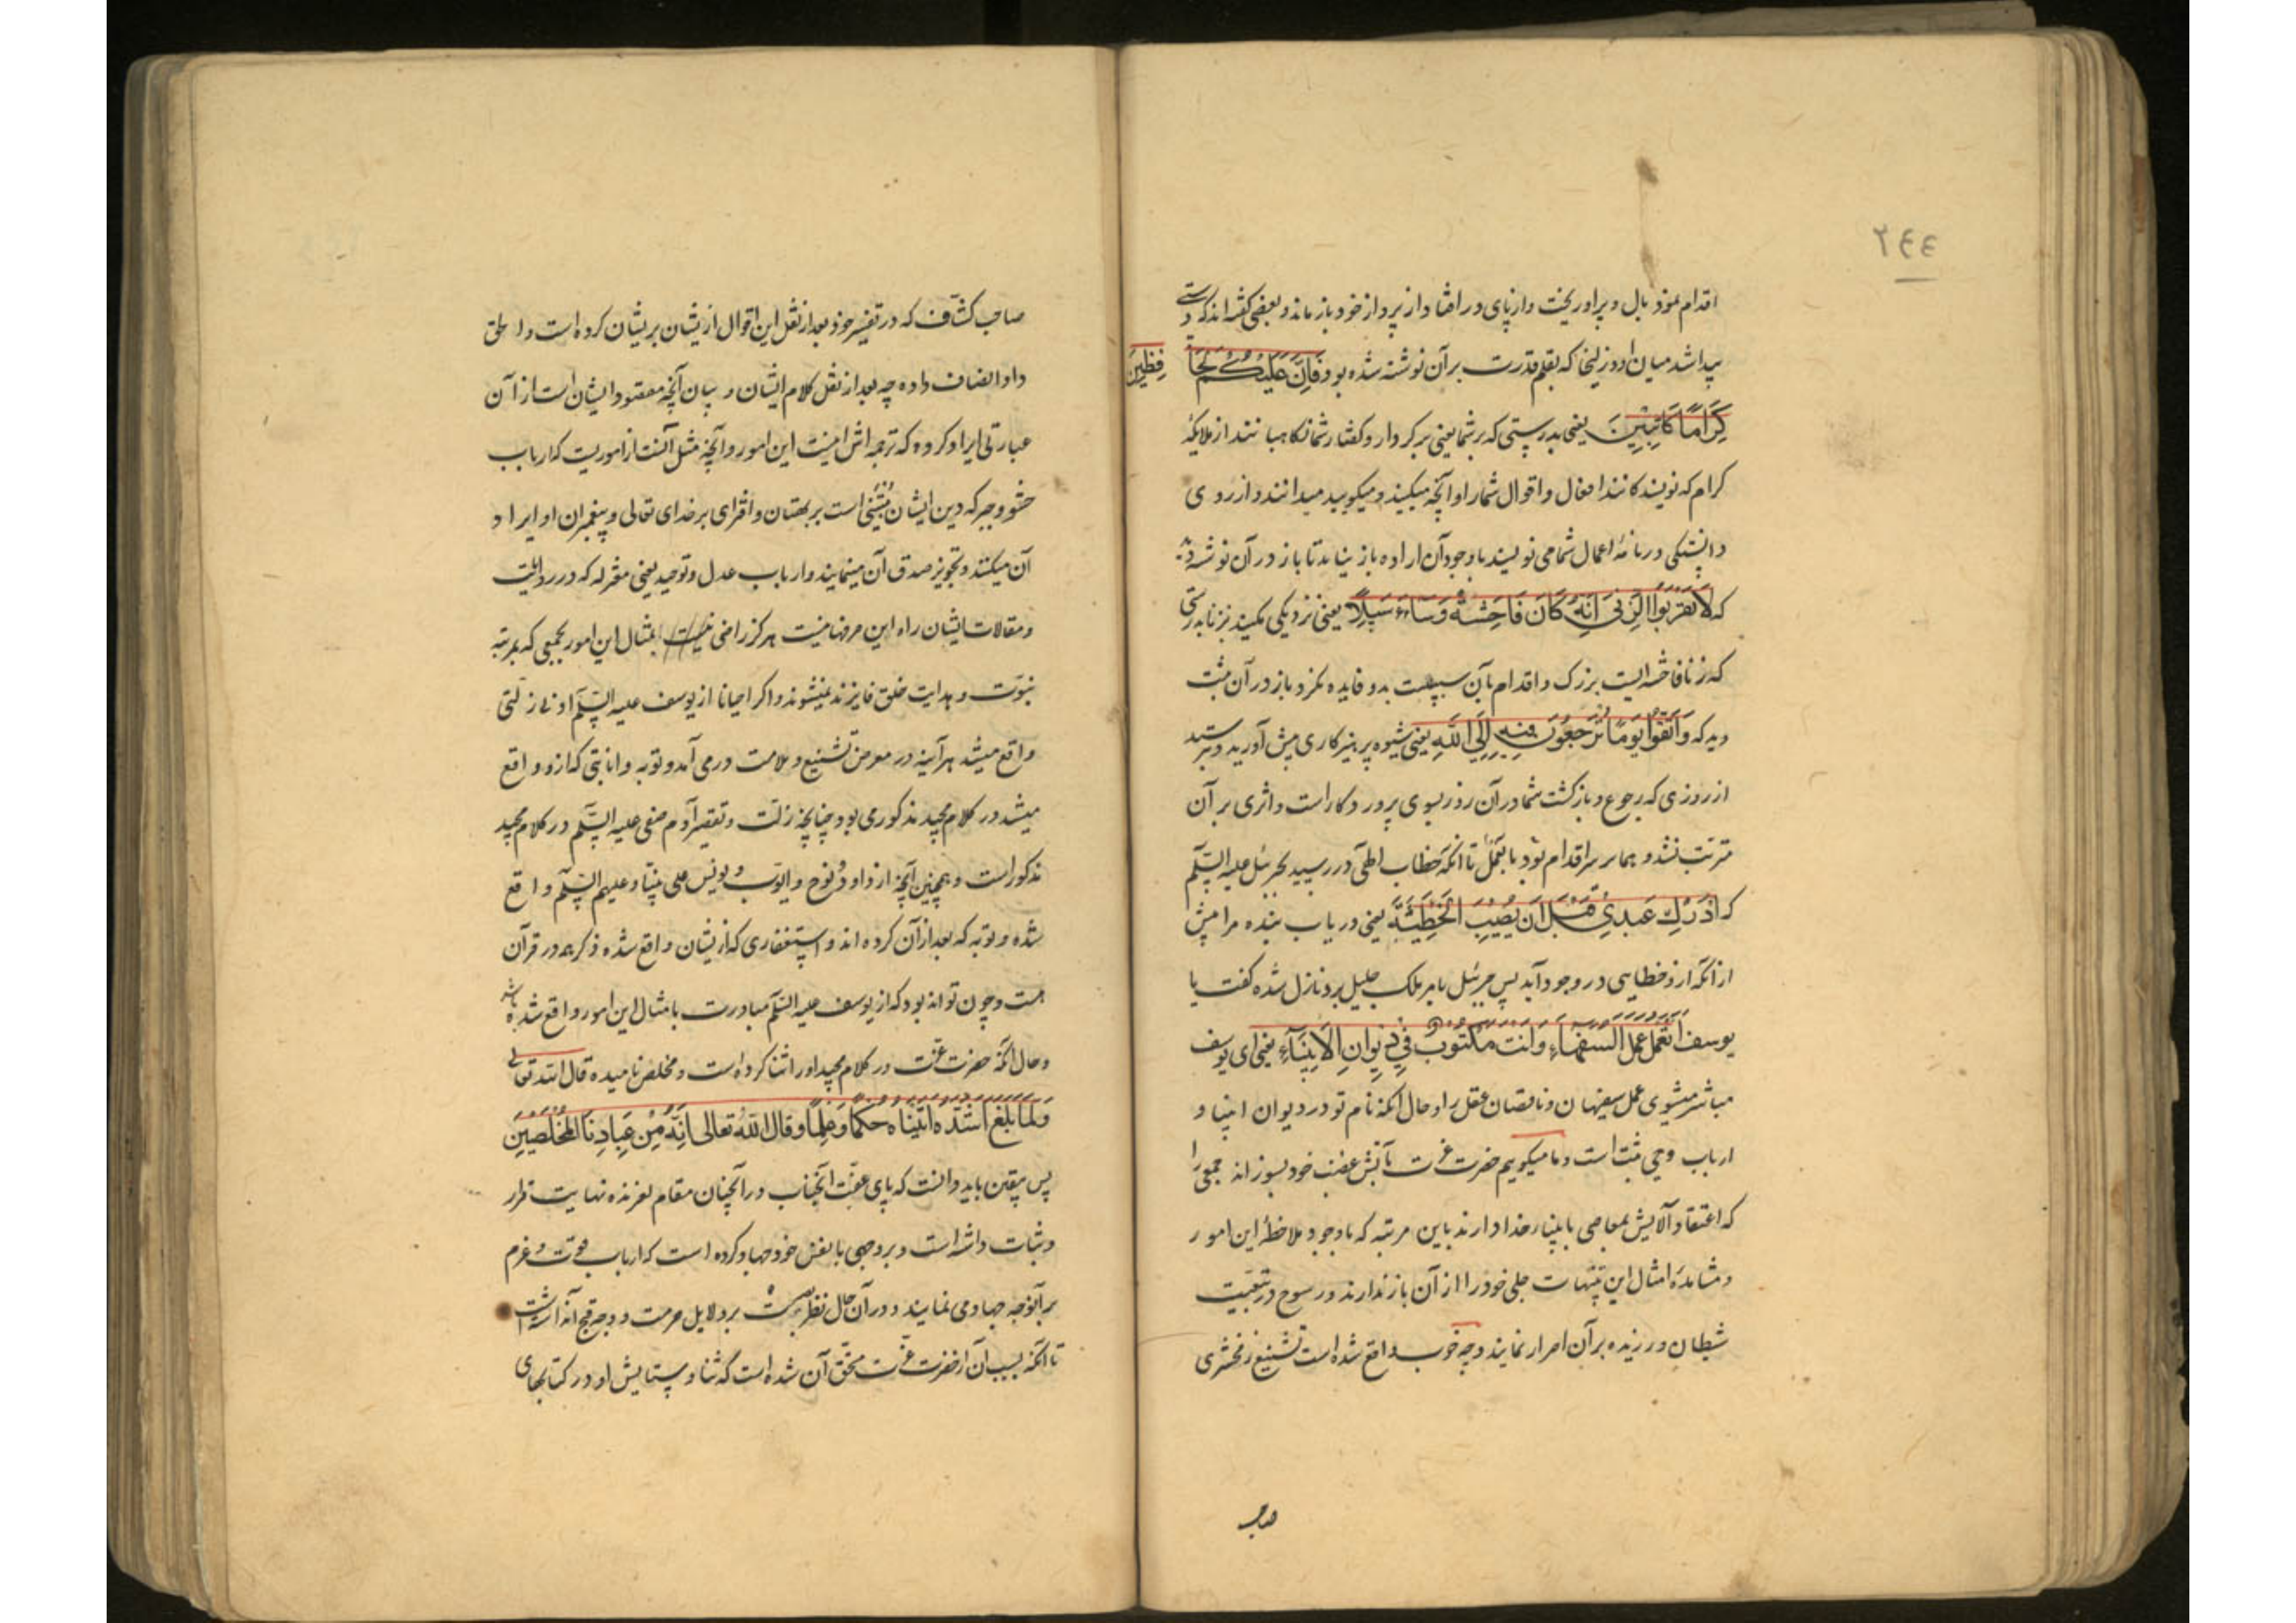 ٢٤٤
اقدام نمود بال و پر او ریخت و از پای در افتاد و از پرواز خود باز ماند و بعضی گفته اند که دستی
پیدا شد میان او و زلیخا که بقلم قدرت بر آن نوشته شده بود فَاِنَّ عَلَیْکُمْ لَحَافِظِیْنَ
کِرَامًا کَاتِبِیْنَ یعنی بدرستی که بر شما یعنی بر کردار و گفتار شما نگاهبانند از ملایکهٔ
کرام که نویسندکانند افعال و اقوال شما را و آنچه میکنید و میکویید میدانند و از روی
دانستکی در نامهٔ اعمال شما می نویسند با وجود آن اراده باز نیامد تا باز در آن نوشته دید
که لَا تَقْرَبُوا الزِّنٰی اِنَّهُ کَانَ فَاحِشَةً وَسَآءَ سَبِیْلًا یعنی نزدیکی مکنید بزنا بدرستی
که زنا فاحشه ایست بزرک و اقدام بآن سبیلیست بد و فایده نکرد باز در آن مثبت
دید که وَاتَّقُوْا یَوْمًا تُرْجَعُوْنَ فِیْهِ اِلَی اللّٰهِ یعنی شیوه پرهیزکاری پیش آورید و بترسید
از روزی که رجوع و بازکشت شما در آن روز بسوی پرورد کار است و اثری بر آن
مترتب نشد و همان بر سر اقدام بود بآن عمل تا آنکه خطاب الهی در رسید بجبرئیل علیه السّلم
که اَدْرِکْ عَبْدِیْ قَبْلَ اَنْ یُصِیْبَ الْخَطِیْئَةَ یعنی دریاب بنده مرا پیش
از آنکه ازو خطایی در وجود آید پس جبرئیل بامر ملک جلیل برو نازل شده گفت یا
یوسف اَتَعْمَلُ عَمَلَ السُّفَهَاءِ وَاَنْتَ مَکْتُوْبٌ فِیْ دِیْوَانِ الْاَنْبِیَآءِ یعنی ای یوسف
مباشر میشوی عمل سفیهان و ناقصان عقل را و حال آنکه نام تو در دیوان انبیا و
ارباب وحی مثبت است و ما میکوییم حضرت عزت بآتش غضب خود بسوزاند جمعی را
که اعتقاد آلایش بمعاصی بانبیاء خدا دارند باین مرتبه که با وجود ملاحظهٔ این امور
و مشاهدهٔ امثال این تنبیهات جلی خود را از آن باز ندارند و رسوخ در تبعیت
شیطان ورزیده بر آن اصرار نمایند و چه خوب واقع شده است تشنیع زمخشری
صاحب
صاحب کشّاف که در تفسیر خود بعد از نقل این اقوال ازیشان بریشان کرده است و الحق
داد انصاف داده چه بعد از نقل کلام ایشان و بیان آنچه مقصود ایشان است از آن
عبارتی ایراد کرده که ترجمه اش اینست این امور و آنچه مثل آنست از اموریست که ارباب
حشو و جبر که دین ایشان مبتنی است بر بهتان و افترای بر خدای تعالی و پیغمبران او ایراد
آن میکنند و تجویز صدق آن مینمایند و ارباب عدل و توحید یعنی معتزله که در روایت
و مقالات ایشان راه این حرفها نیست هرکز راضی نیستند بامثال این امور بجمعی که بمرتبه
نبوّت و هدایت خلق فایزند نمیشوند و اکر احیانا از یوسف علیه السّلم ادنی زلتی
واقع میشد هر آینه در معرض تشنیع و ملامت در می آمد و توبه و انابتی که ازو واقع
میشد در کلام مجید مذکور می بود چنانچه زلّت و تقصیر آدم صفی علیه السّلم در کلام مجید
مذکور است و همچنین آنچه از داود و نوح و ایوب و یونس علی نبینا و علیهم السّلم واقع
شده و توبه که بعد از آن کرده اند و استغفاری که ازیشان واقع شده ذکر همه در قرآن
هست و چون تواند بود که از یوسف علیه السّلم مبادرت بامثال این امور واقع شده باشد
و حال آنکه حضرت عزّت در کلام مجید او را ثنا کرده است و مخلص نامیده قال الله تعالی
وَلَمَّا بَلَغَ اَشُدَّهُ اٰتَیْنَاهُ حُکْمًا وَعِلْمًا وقال اللّٰه تعالی اِنَّهُ مِنْ عِبَادِنَا الْمُخْلَصِیْنَ
پس بیقین باید دانست که پای عفّت آنجناب در آنچنان مقام لغزنده نهایت قرار
و ثبات داشته است و بر وجهی با نفس خود جهاد کرده است که ارباب قوّت و عزم
بر آنوجه جهاد می نمایند و در آن حال نظر بصیرت بر دلایل حرمت و وجه قبح آن داشته است
تا آنکه بسبب آن از حضرت عزّت مستحق آن شده است که ثنا و ستایش او در کتابهای